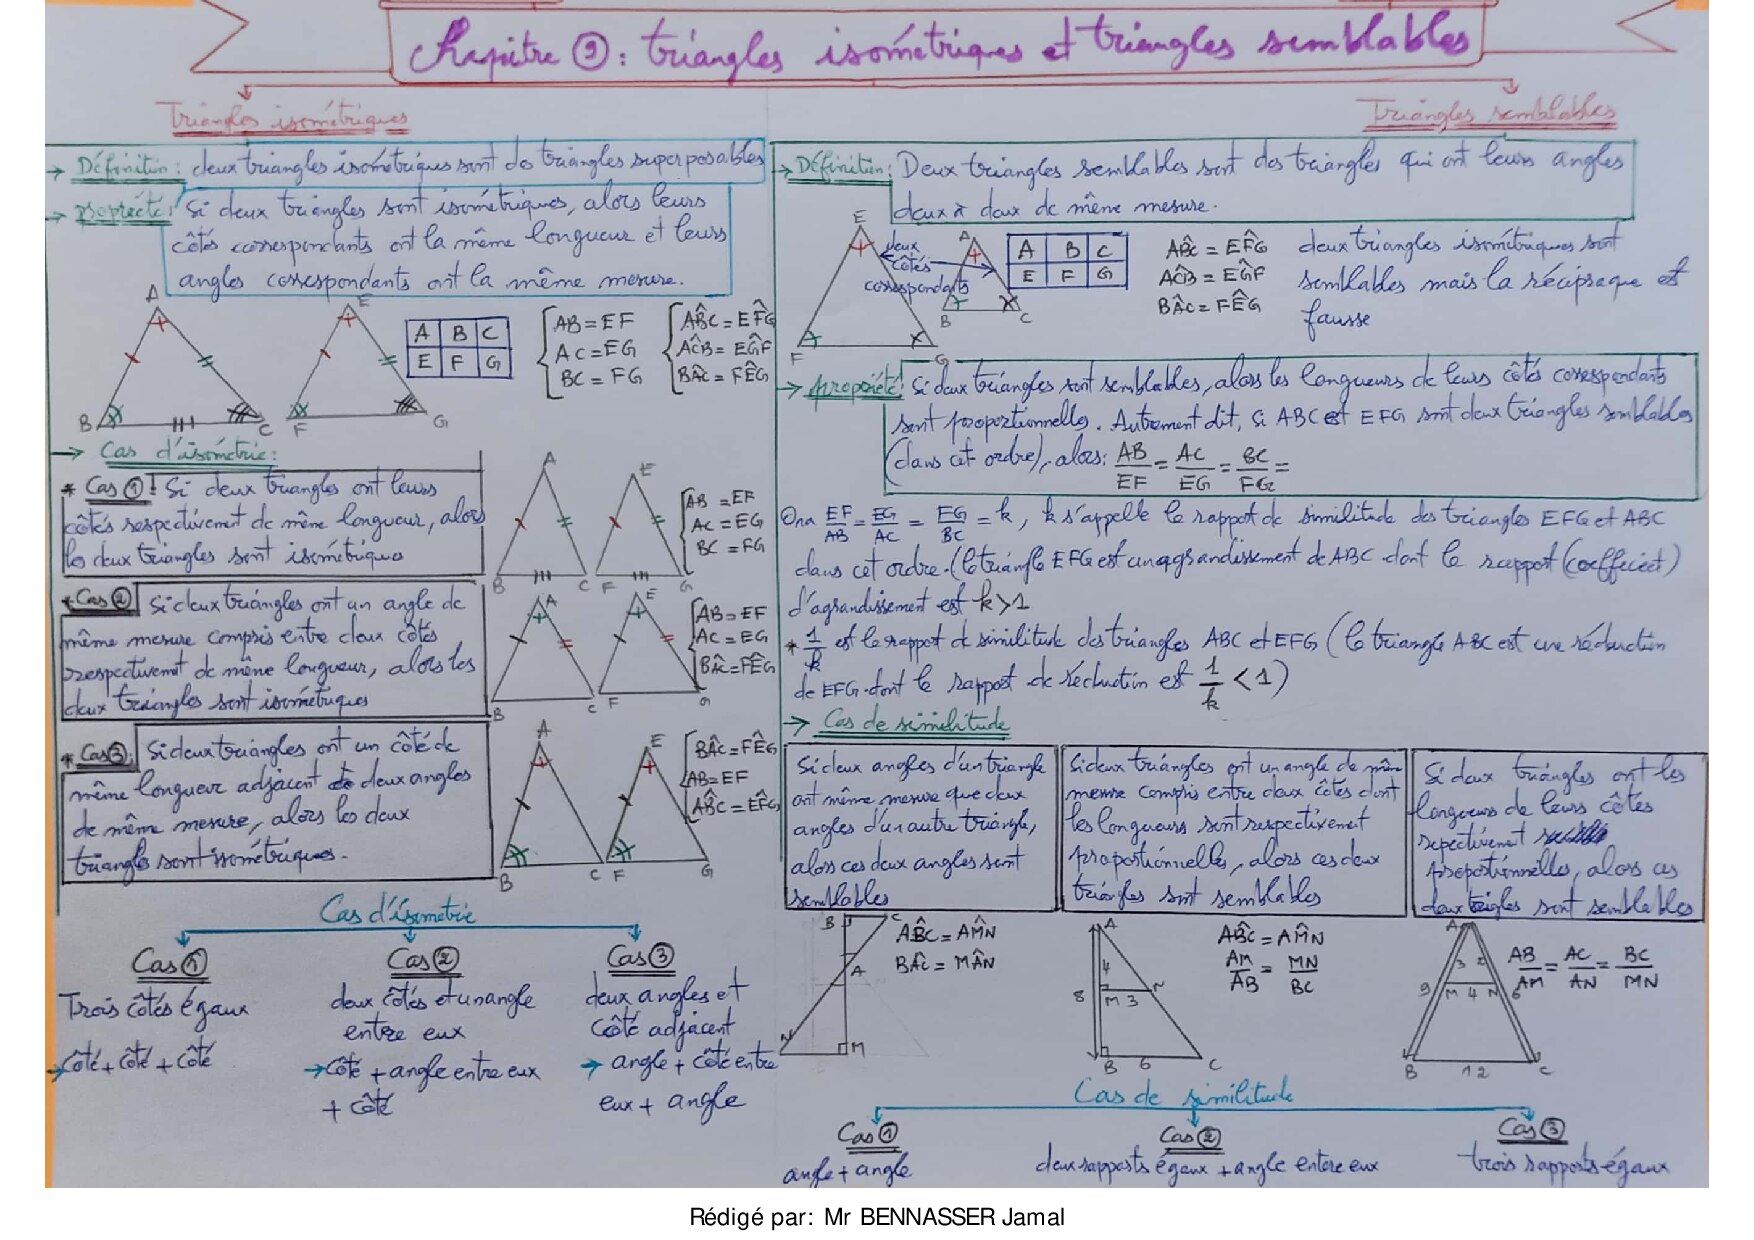 Chapitre ⑨ : triangles isométriques et triangles semblables
Triangles isométriques
→ Définition : deux triangles isométriques sont des triangles superposables
→ propriété : Si deux triangles sont isométriques, alors leurs
côtés correspondants ont la même longueur et leurs
angles correspondants ont la même mesure.
A
E
B
C
F
G
A B C
E F G
AB = EF
AC = EG
BC = FG
AB̂C = EF̂G
AĈB = EĜF
BÂC = FÊG
→ Cas d'isométrie :
* Cas ① : Si deux triangles ont leurs
côtés respectivement de même longueur, alors
les deux triangles sont isométriques
A
E
B
C
F
G
AB = EF
AC = EG
BC = FG
* Cas ② Si deux triangles ont un angle de
même mesure compris entre deux côtés
respectivement de même longueur, alors les
deux triangles sont isométriques
A
E
B
C
F
G
AB = EF
AC = EG
BÂC = FÊG
* Cas ③ : Si deux triangles ont un côté de
même longueur adjacent à deux angles
de même mesure, alors les deux
triangles sont isométriques.
A
E
B
C
F
G
BÂC = FÊG
AB = EF
AB̂C = EF̂G
Cas d'isométrie
Cas ①
Trois côtés égaux
→ côté + côté + côté
Cas ②
deux côtés et un angle
entre eux
→ Côté + angle entre eux
+ côté
Cas ③
deux angles et
côté adjacent
→ angle + côté entre
eux + angle
Triangles semblables
→ Définition : Deux triangles semblables sont des triangles qui ont leurs angles
deux à deux de même mesure.
E
F
G
deux
côtés
correspondants
A
B
C
A B C
E F G
AB̂C = EF̂G
AĈB = EĜF
BÂC = FÊG
deux triangles isométriques sont
semblables mais la réciproque est
fausse
→ propriété : Si deux triangles sont semblables, alors les longueurs de leurs côtés correspondants
sont proportionnelles. Autrement dit, si ABC et EFG sont deux triangles semblables
(dans cet ordre), alors : AB/EF = AC/EG = BC/FG =
On a EF/AB = EG/AC = FG/BC = k, k s'appelle le rapport de similitude des triangles EFG et ABC
dans cet ordre. (le triangle EFG est un agrandissement de ABC dont le rapport (coefficient)
d'agrandissement est k>1
* 1/k est le rapport de similitude des triangles ABC et EFG (le triangle ABC est une réduction
de EFG dont le rapport de réduction est 1/k < 1)
→ Cas de similitude
Si deux angles d'un triangle
ont même mesure que deux
angles d'un autre triangle,
alors ces deux angles sont
semblables
Si deux triangles ont un angle de même
mesure compris entre deux côtés dont
les longueurs sont respectivement
proportionnelles, alors ces deux
triangles sont semblables
Si deux triangles ont les
longueurs de leurs côtés
repectivement
proportionnelles, alors ces
deux trigles sont semblables
B
C
A
N
M
AB̂C = AM̂N
BÂC = MÂN
A
4
8
M 3 N
B 6 C
AB̂C = AM̂N
AM/AB = MN/BC
A
3 2
9 M 4 N 6
B 12 C
AB/AM = AC/AN = BC/MN
Cas de similitude
Cas ①
angle + angle
Cas ②
deux rapports égaux + angle entre eux
Cas ③
trois rapports égaux
Rédigé par: Mr BENNASSER Jamal